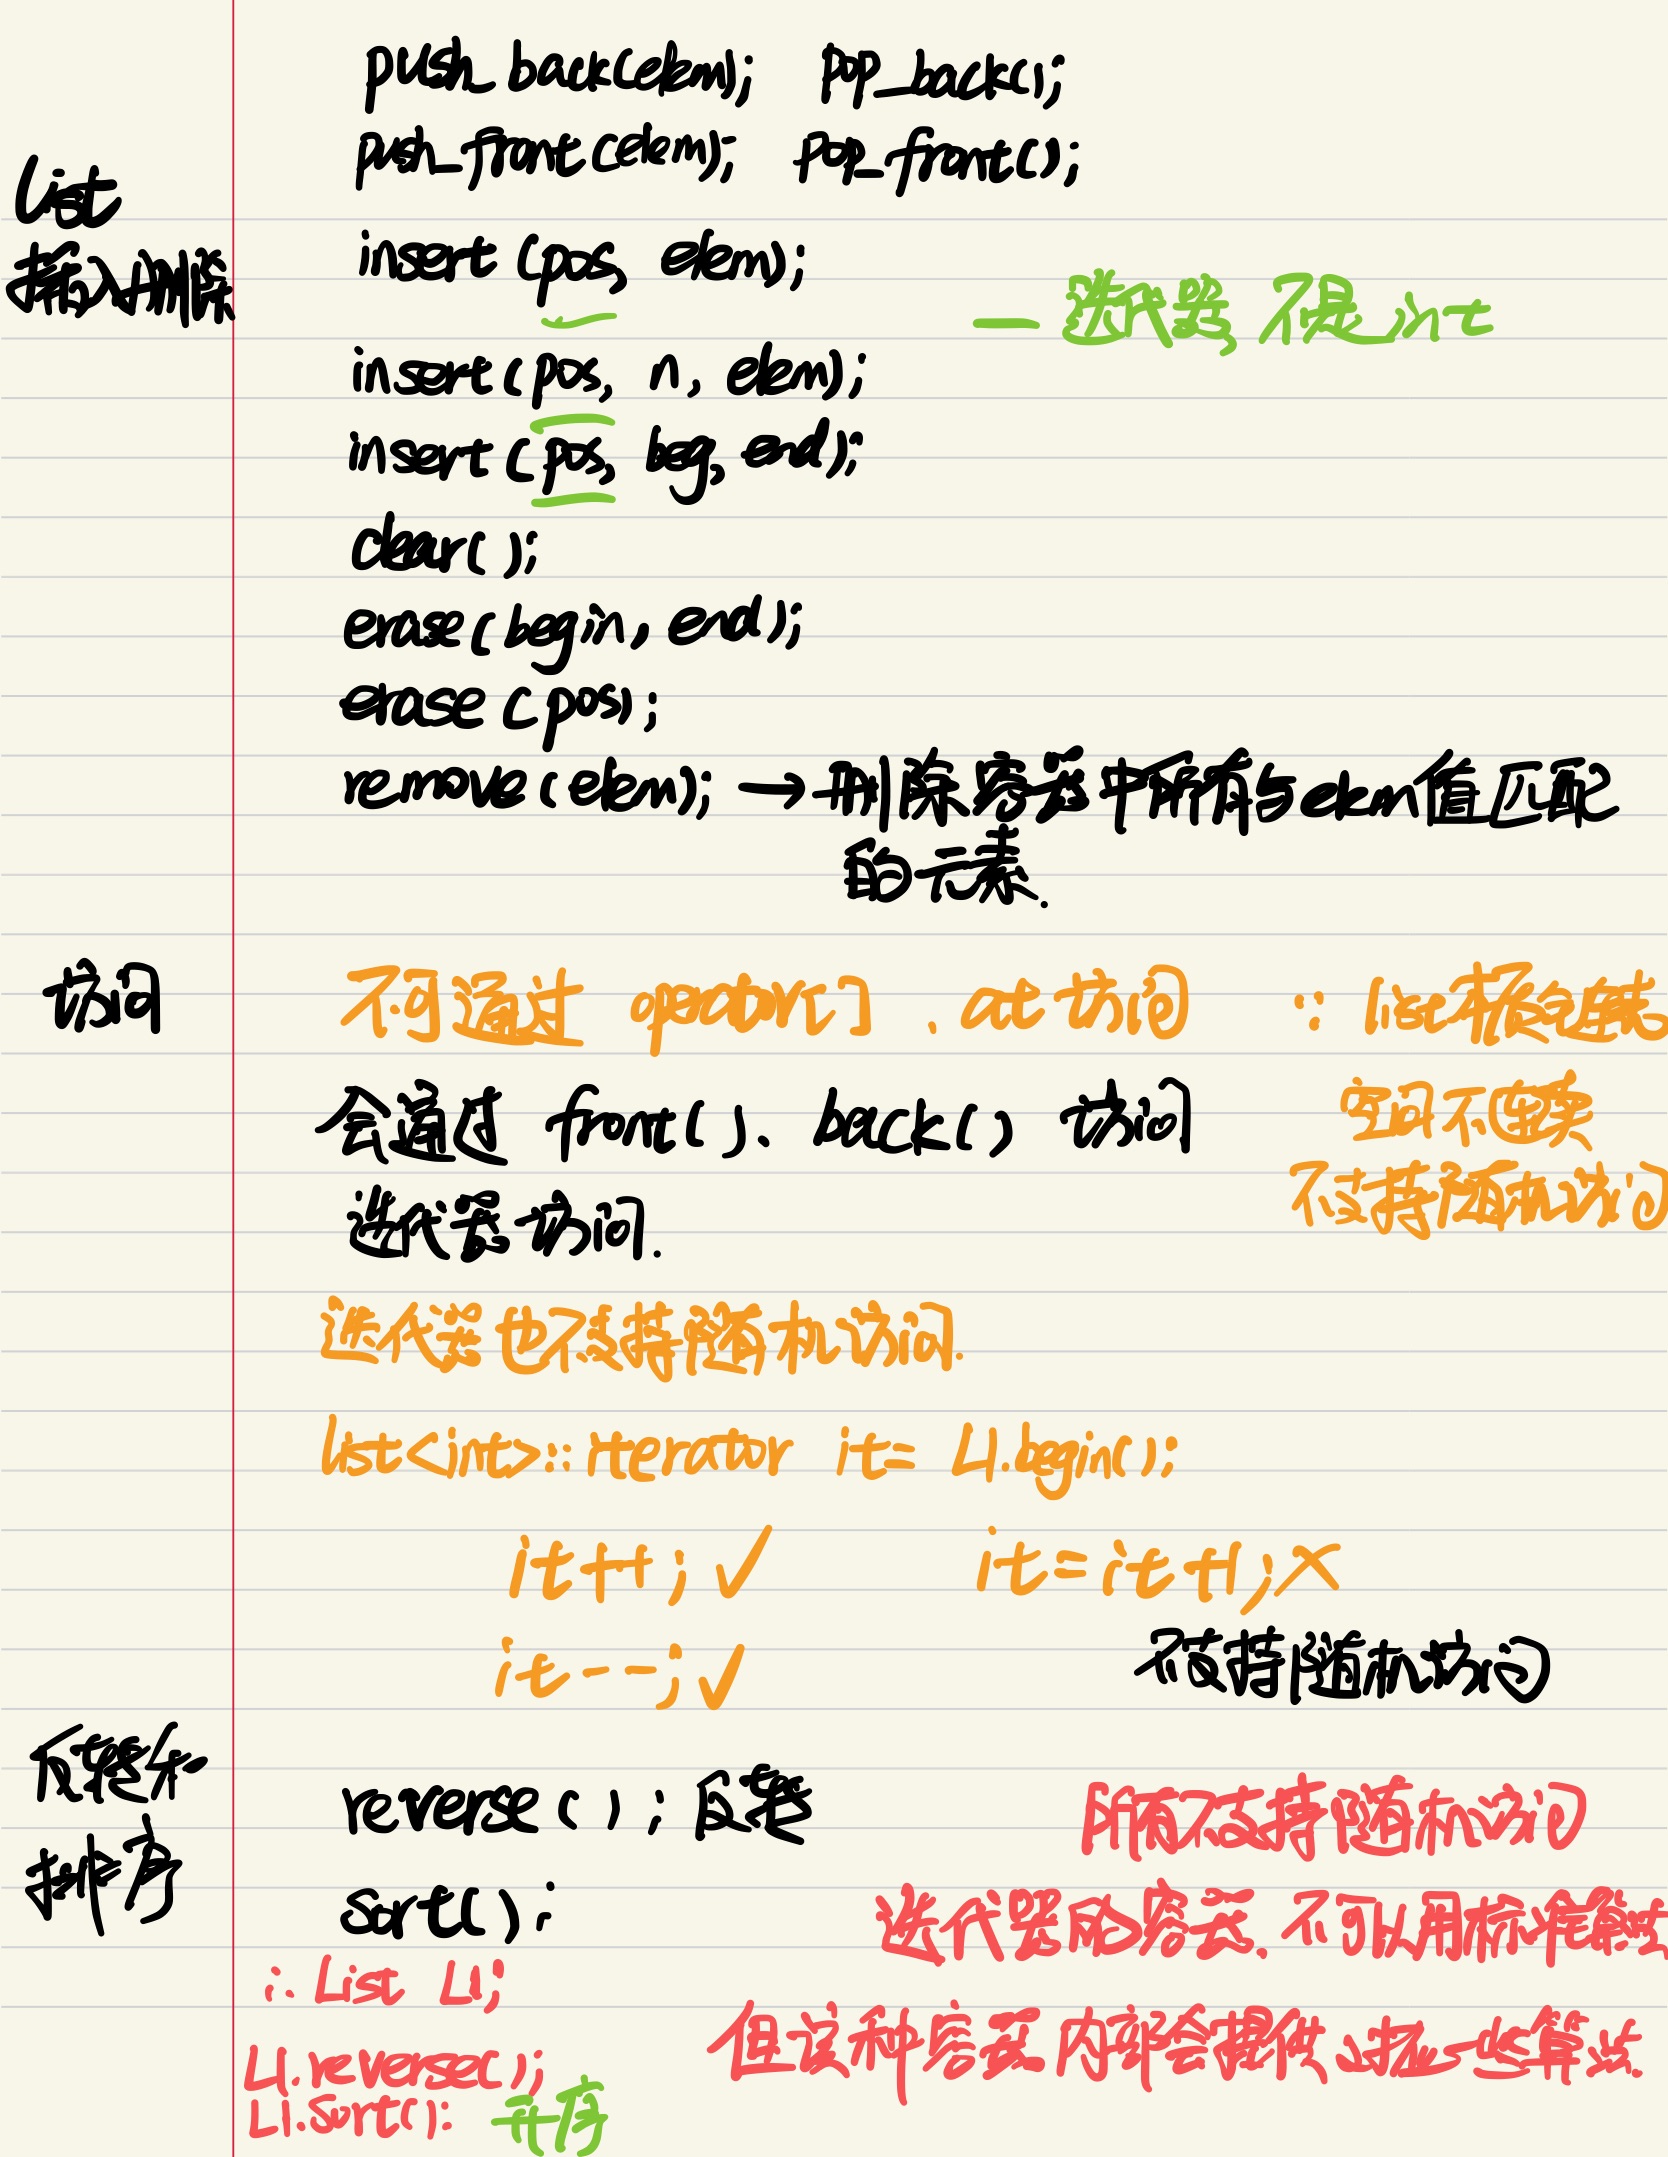 push_back(elem); pop_back();
push_front(elem); pop_front();
list
插入删除
insert (pos, elem);
— 迭代器, 不是int
insert (pos, n, elem);
insert (pos, beg, end);
clear();
erase(begin, end);
erase (pos);
remove(elem); → 删除容器中所有与elem值匹配
的元素.
访问
不可通过 operator[] 、at 访问 ∵ list本质是链表
空间不连续
不支持随机访问
会通过 front()、back() 访问
迭代器访问.
迭代器也不支持随机访问.
list<int>::iterator it= L1.begin();
it++; ✓ it=it+1; ×
it--; ✓ 不支持随机访问
反转和
排序
reverse(); 反转
sort();
所有不支持随机访问
迭代器的容器, 不可以用标准算法
∴ List L1;
但该种容器内部会提供对应一些算法.
L1.reverse();
L1.sort(); 升序